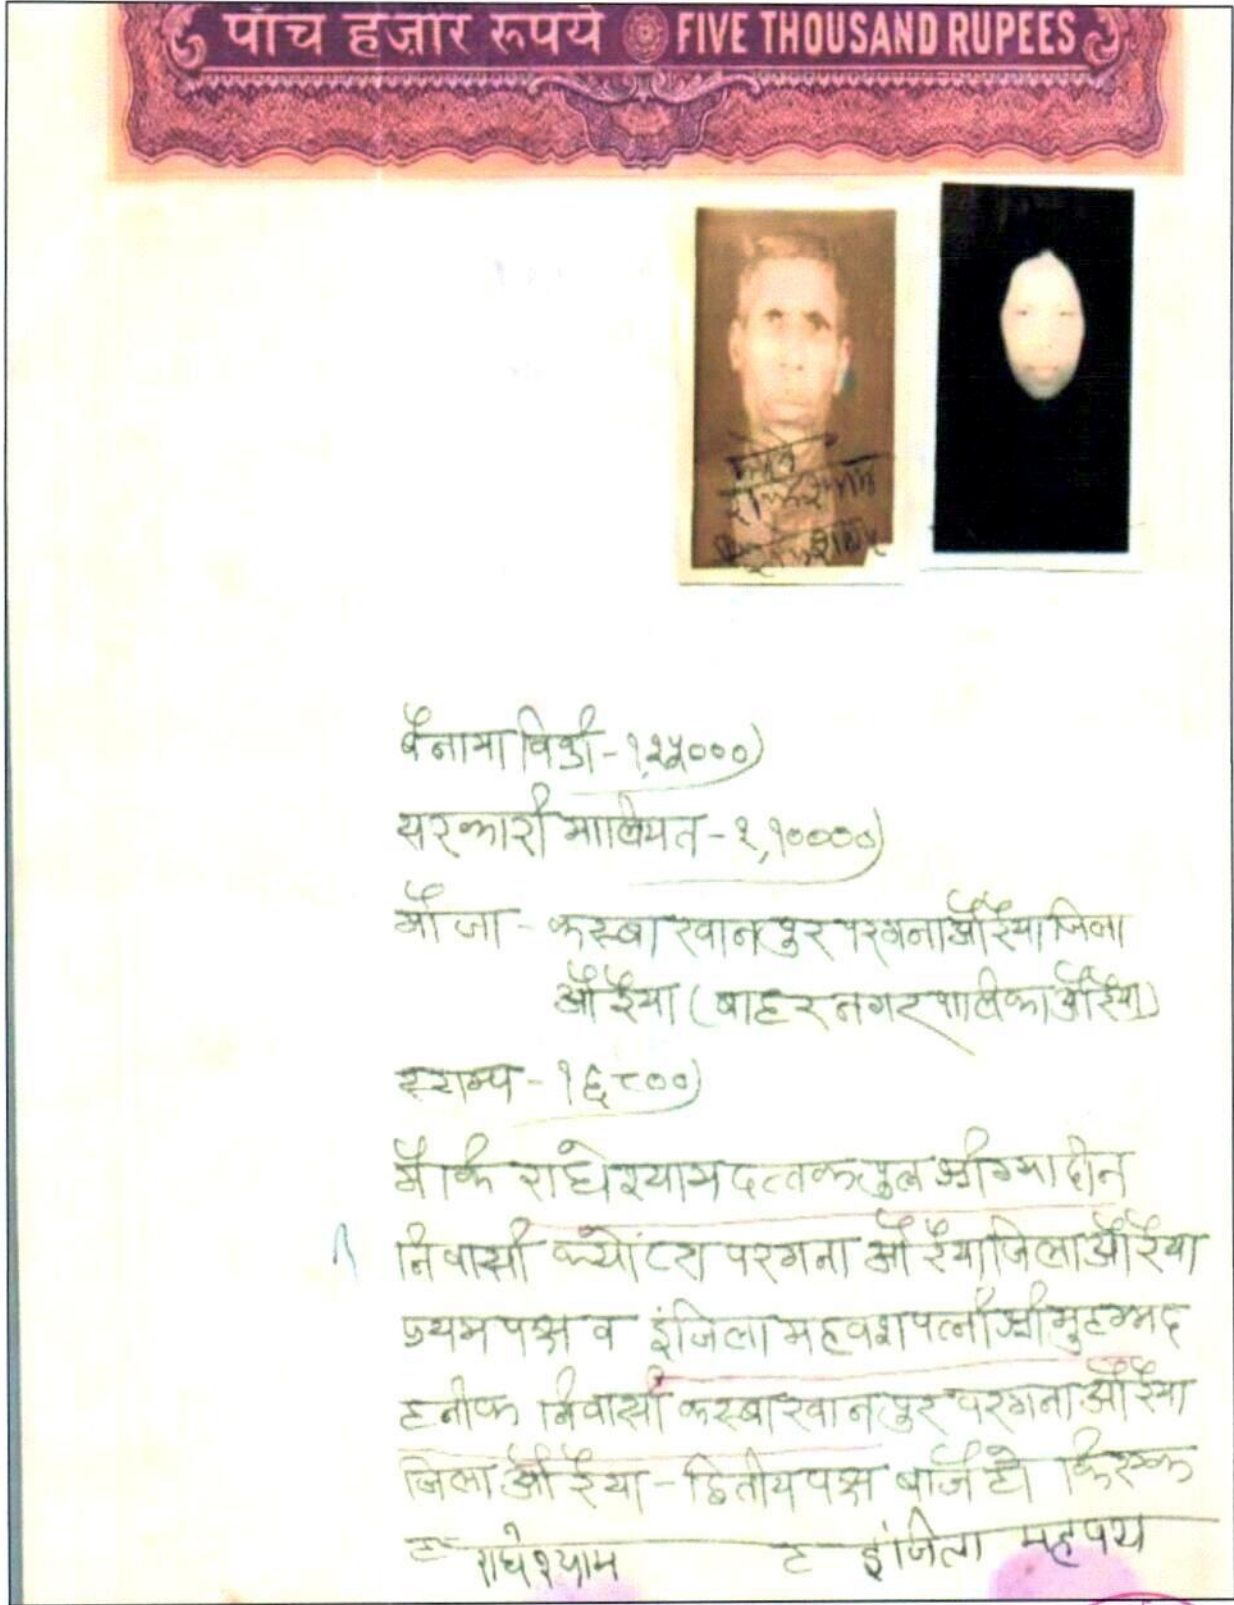 पाँच हज़ार रूपये FIVE THOUSAND RUPEES
बैनामा विक्री - १,२५०००)
सरकारी मालियत - २,१००००)
मौजा - कस्बा खानपुर परगना औरैया जिला
औरैया (बाहर नगर पालिका औरैया)
स्टाम्प - १६८००)
मैं कि राधेश्याम दत्तक पुत्र श्री गयादीन
निवासी क्योंटरा परगना औरैया जिला औरैया
प्रथम पक्ष व इंजिला महवश पत्नी श्री मुहम्मद
हनीफ निवासी कस्बा खानपुर परगना औरैया
जिला औरैया - द्वितीय पक्ष बाजै हो कि एक
ह राधेश्याम ह इंजिला महवश